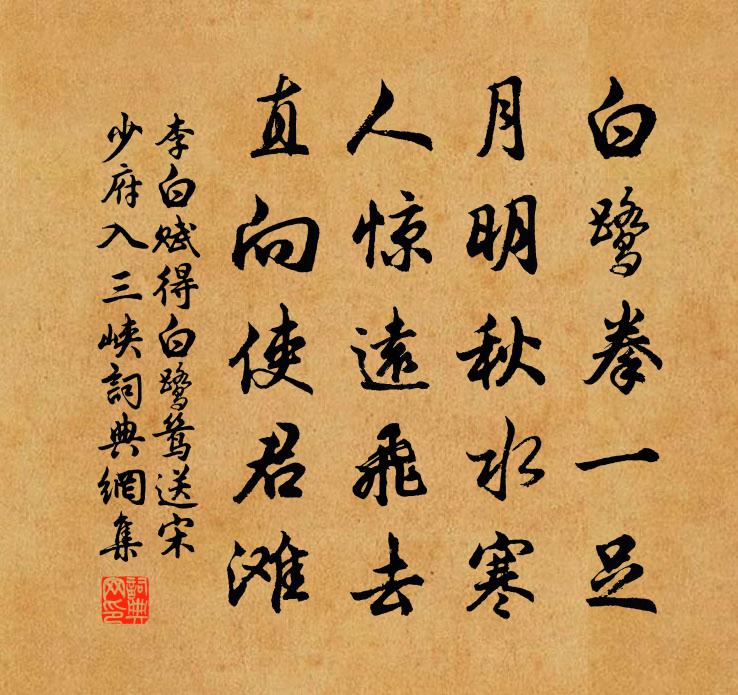 白鹭拳一足
月明秋水寒
人惊遠飛去
直向使君滩
李白赋得白鹭鸶送宋
少府入三峡詞典網集
詞典
网印